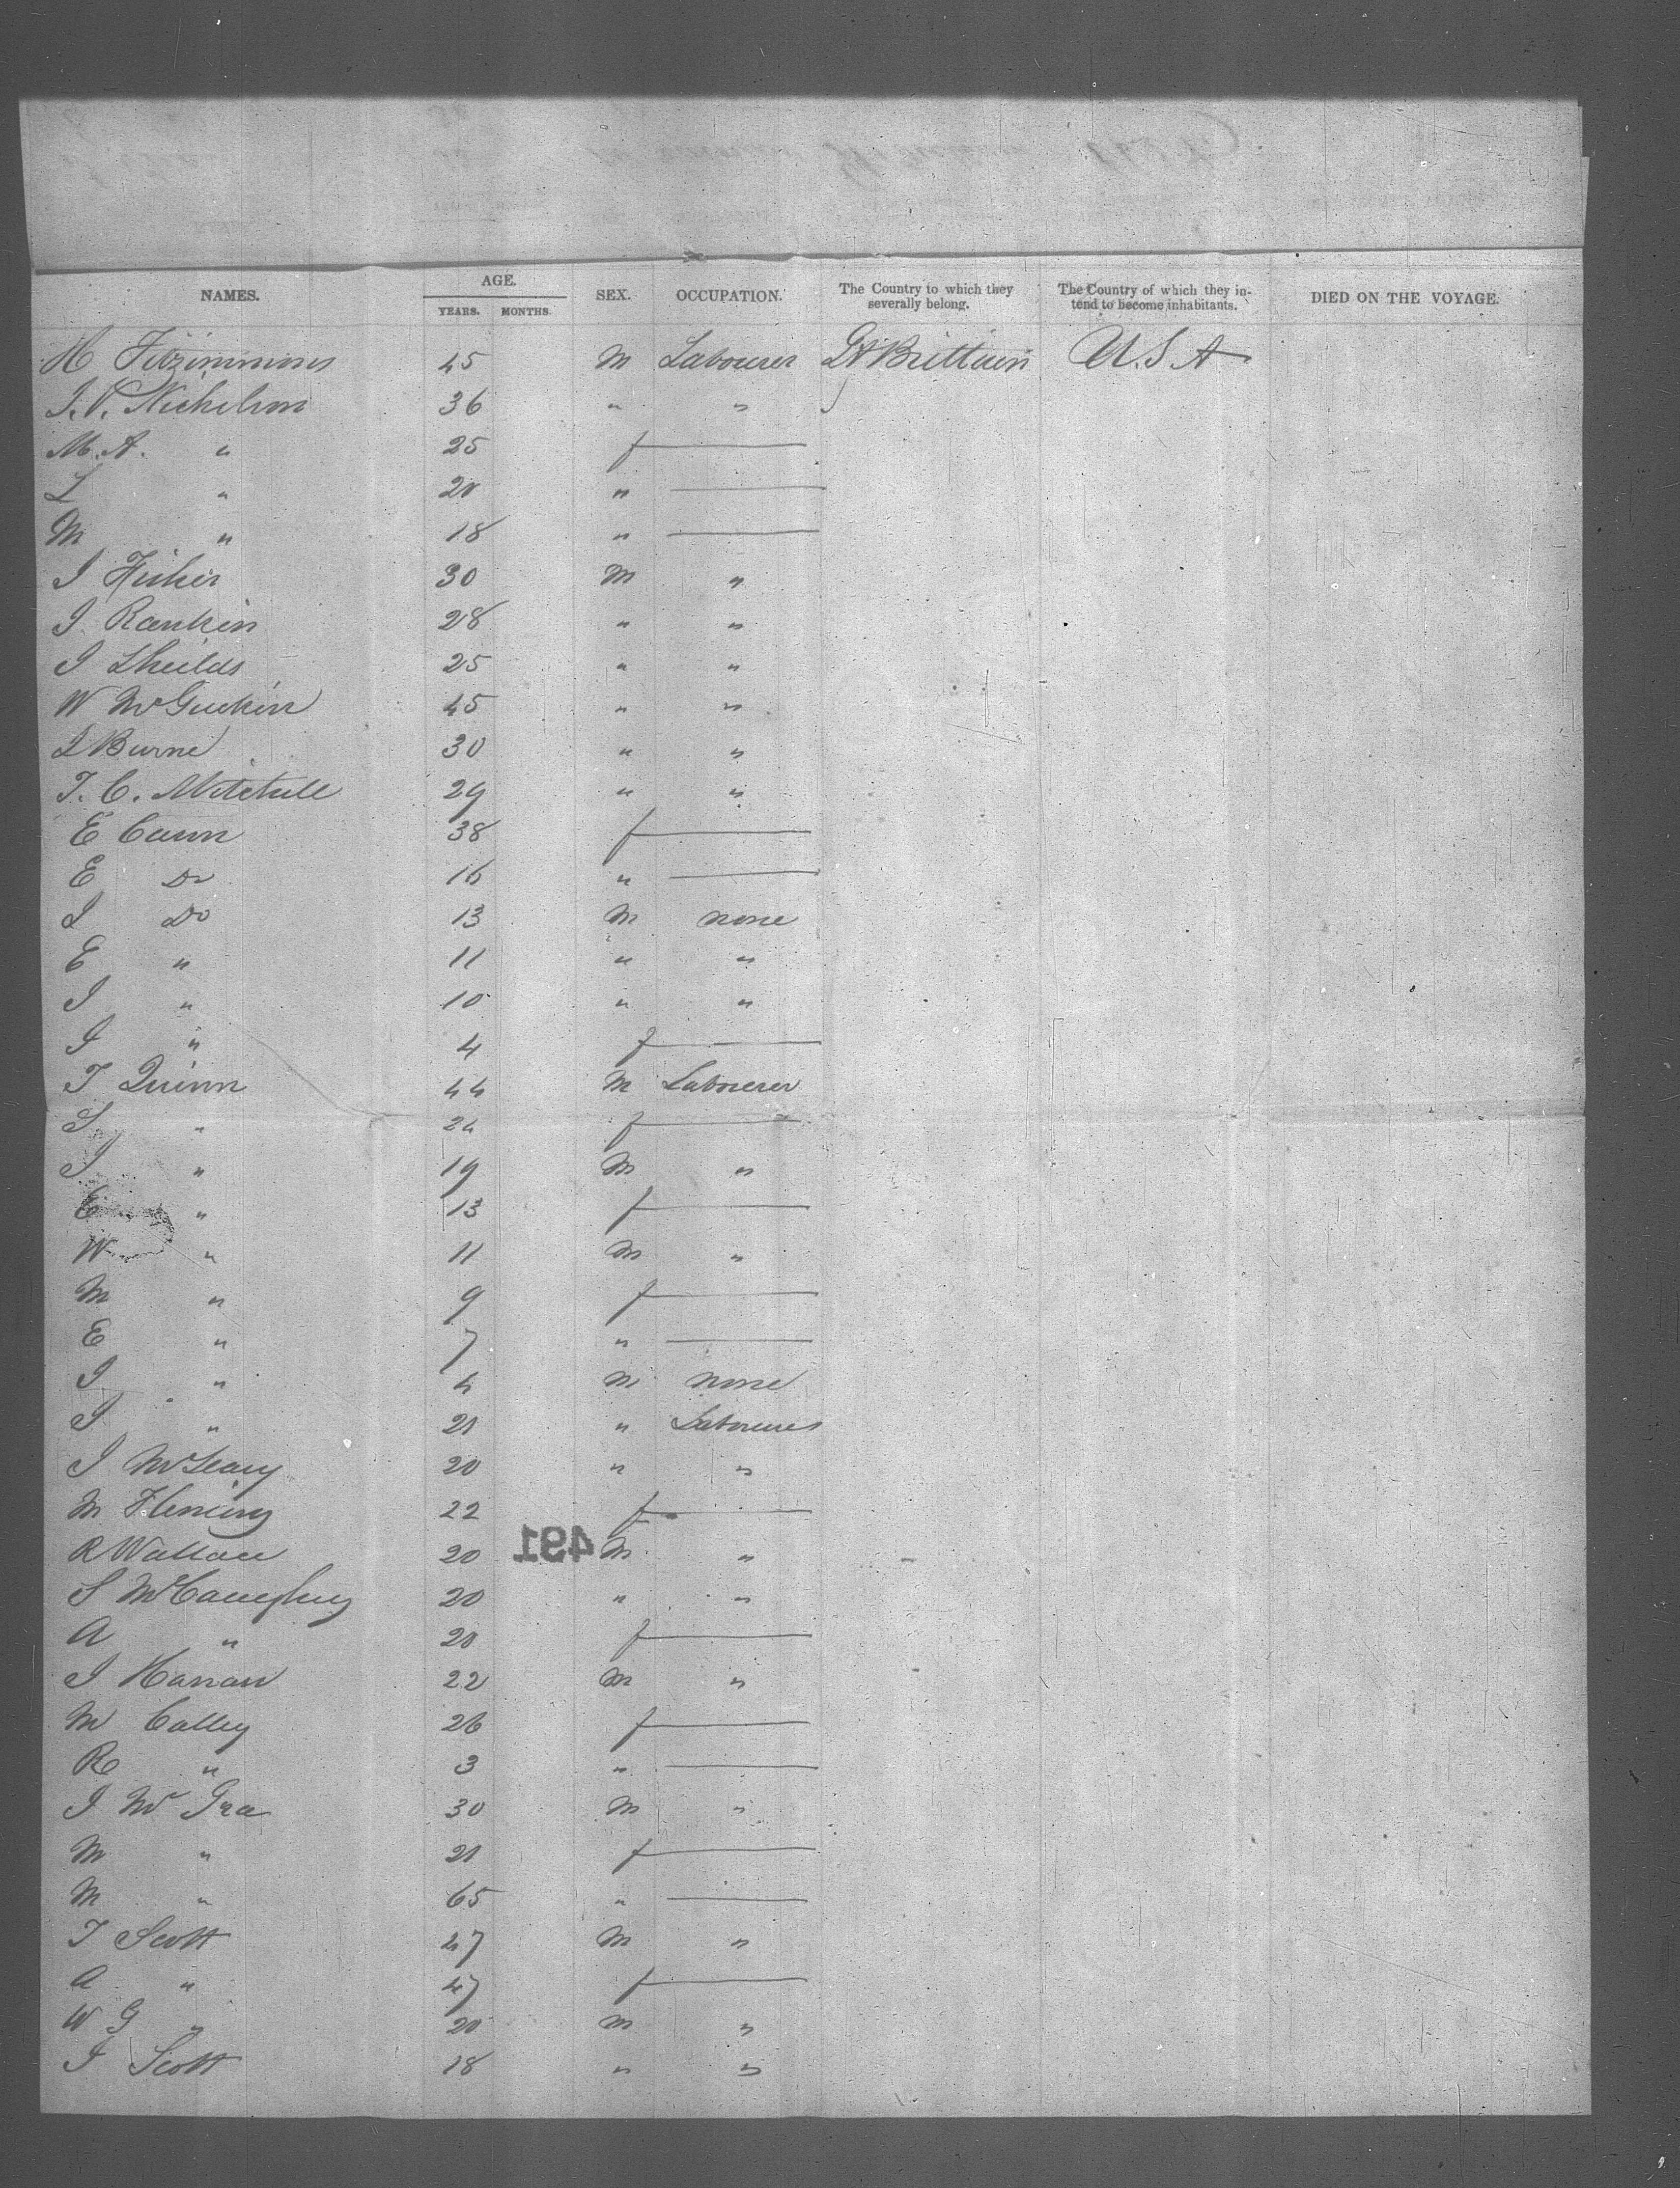 NAMES. AGE. YEARS. MONTHS. SEX. OCCUPATION. The Country to which they severally belong. The Country of which they intend to become inhabitants. DIED ON THE VOYAGE.
H Fitzimmons 45 M Labourer Gt Brittain U.S.A
J. V. Nichelson 36 " "
M. A. " 25 f
L " 20 "
M " 18 "
J Fisher 30 M "
J Rankin 28 " "
J Sheilds 25 " "
W McGuckin 45 " "
J Burne 30 " "
T. C. Mitchell 29 " "
E Cann 38 f
E Do 16 "
J Do 13 M none
E " 11 " "
J " 10 " "
J " 4 f
T Quinn 44 M Labourer
S " 24 f
J " 19 M "
E " 13 f
W " 11 M "
M " 9 f
E " 7 "
J " 4 M none
J " 21 " Labourer
J McLeary 20 " "
M Fleming 22 f
R Wallace 20 491 M "
S McCaughey 20 " "
A " 20 f
J Hanan 22 M "
M Calley 26 f
R " 3 "
J Mc Gra 30 M "
M " 21 f
M " 65 "
T Scott 47 M "
A " 47 f
W G " 20 M "
J Scott 18 " "